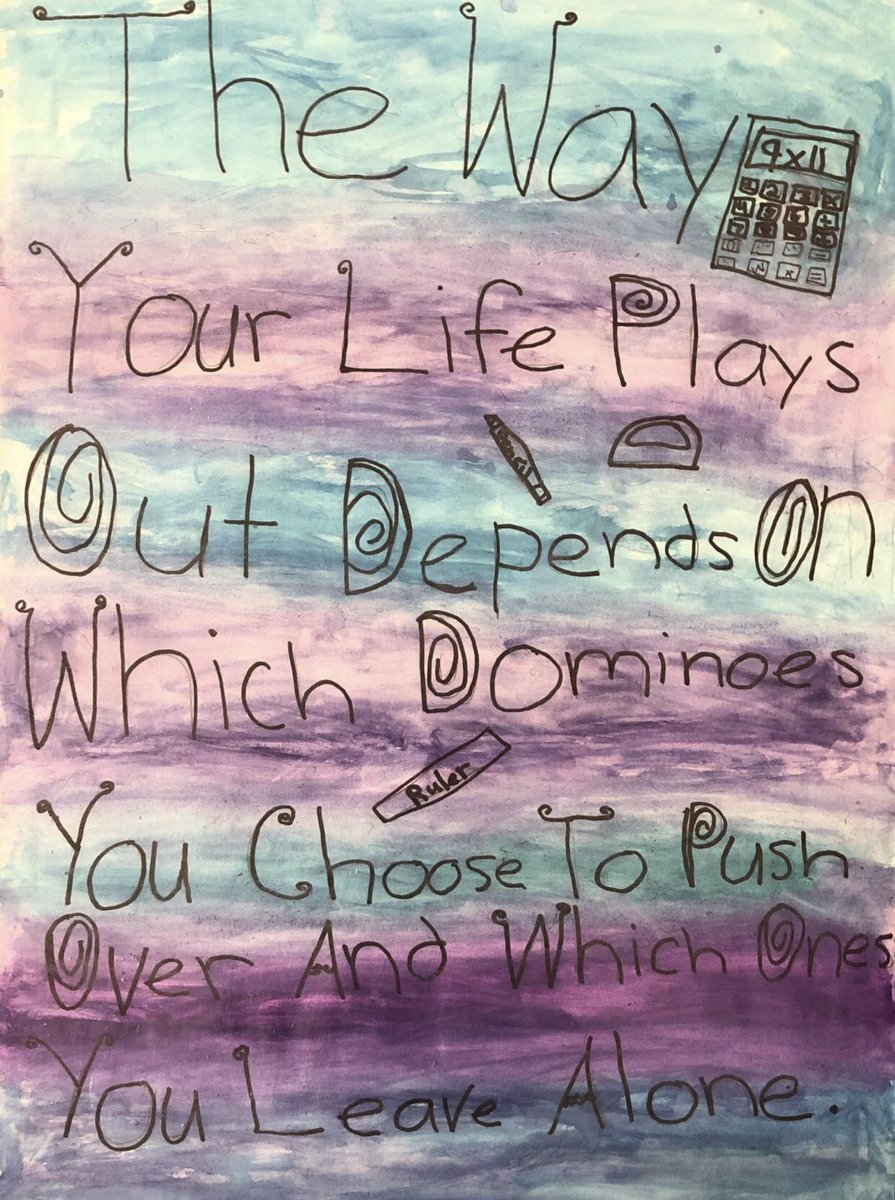 The Way
9x11
Your Life Plays
Out Depends On
Which Dominoes
Ruler
You Choose To Push
Over And Which Ones
You Leave Alone.